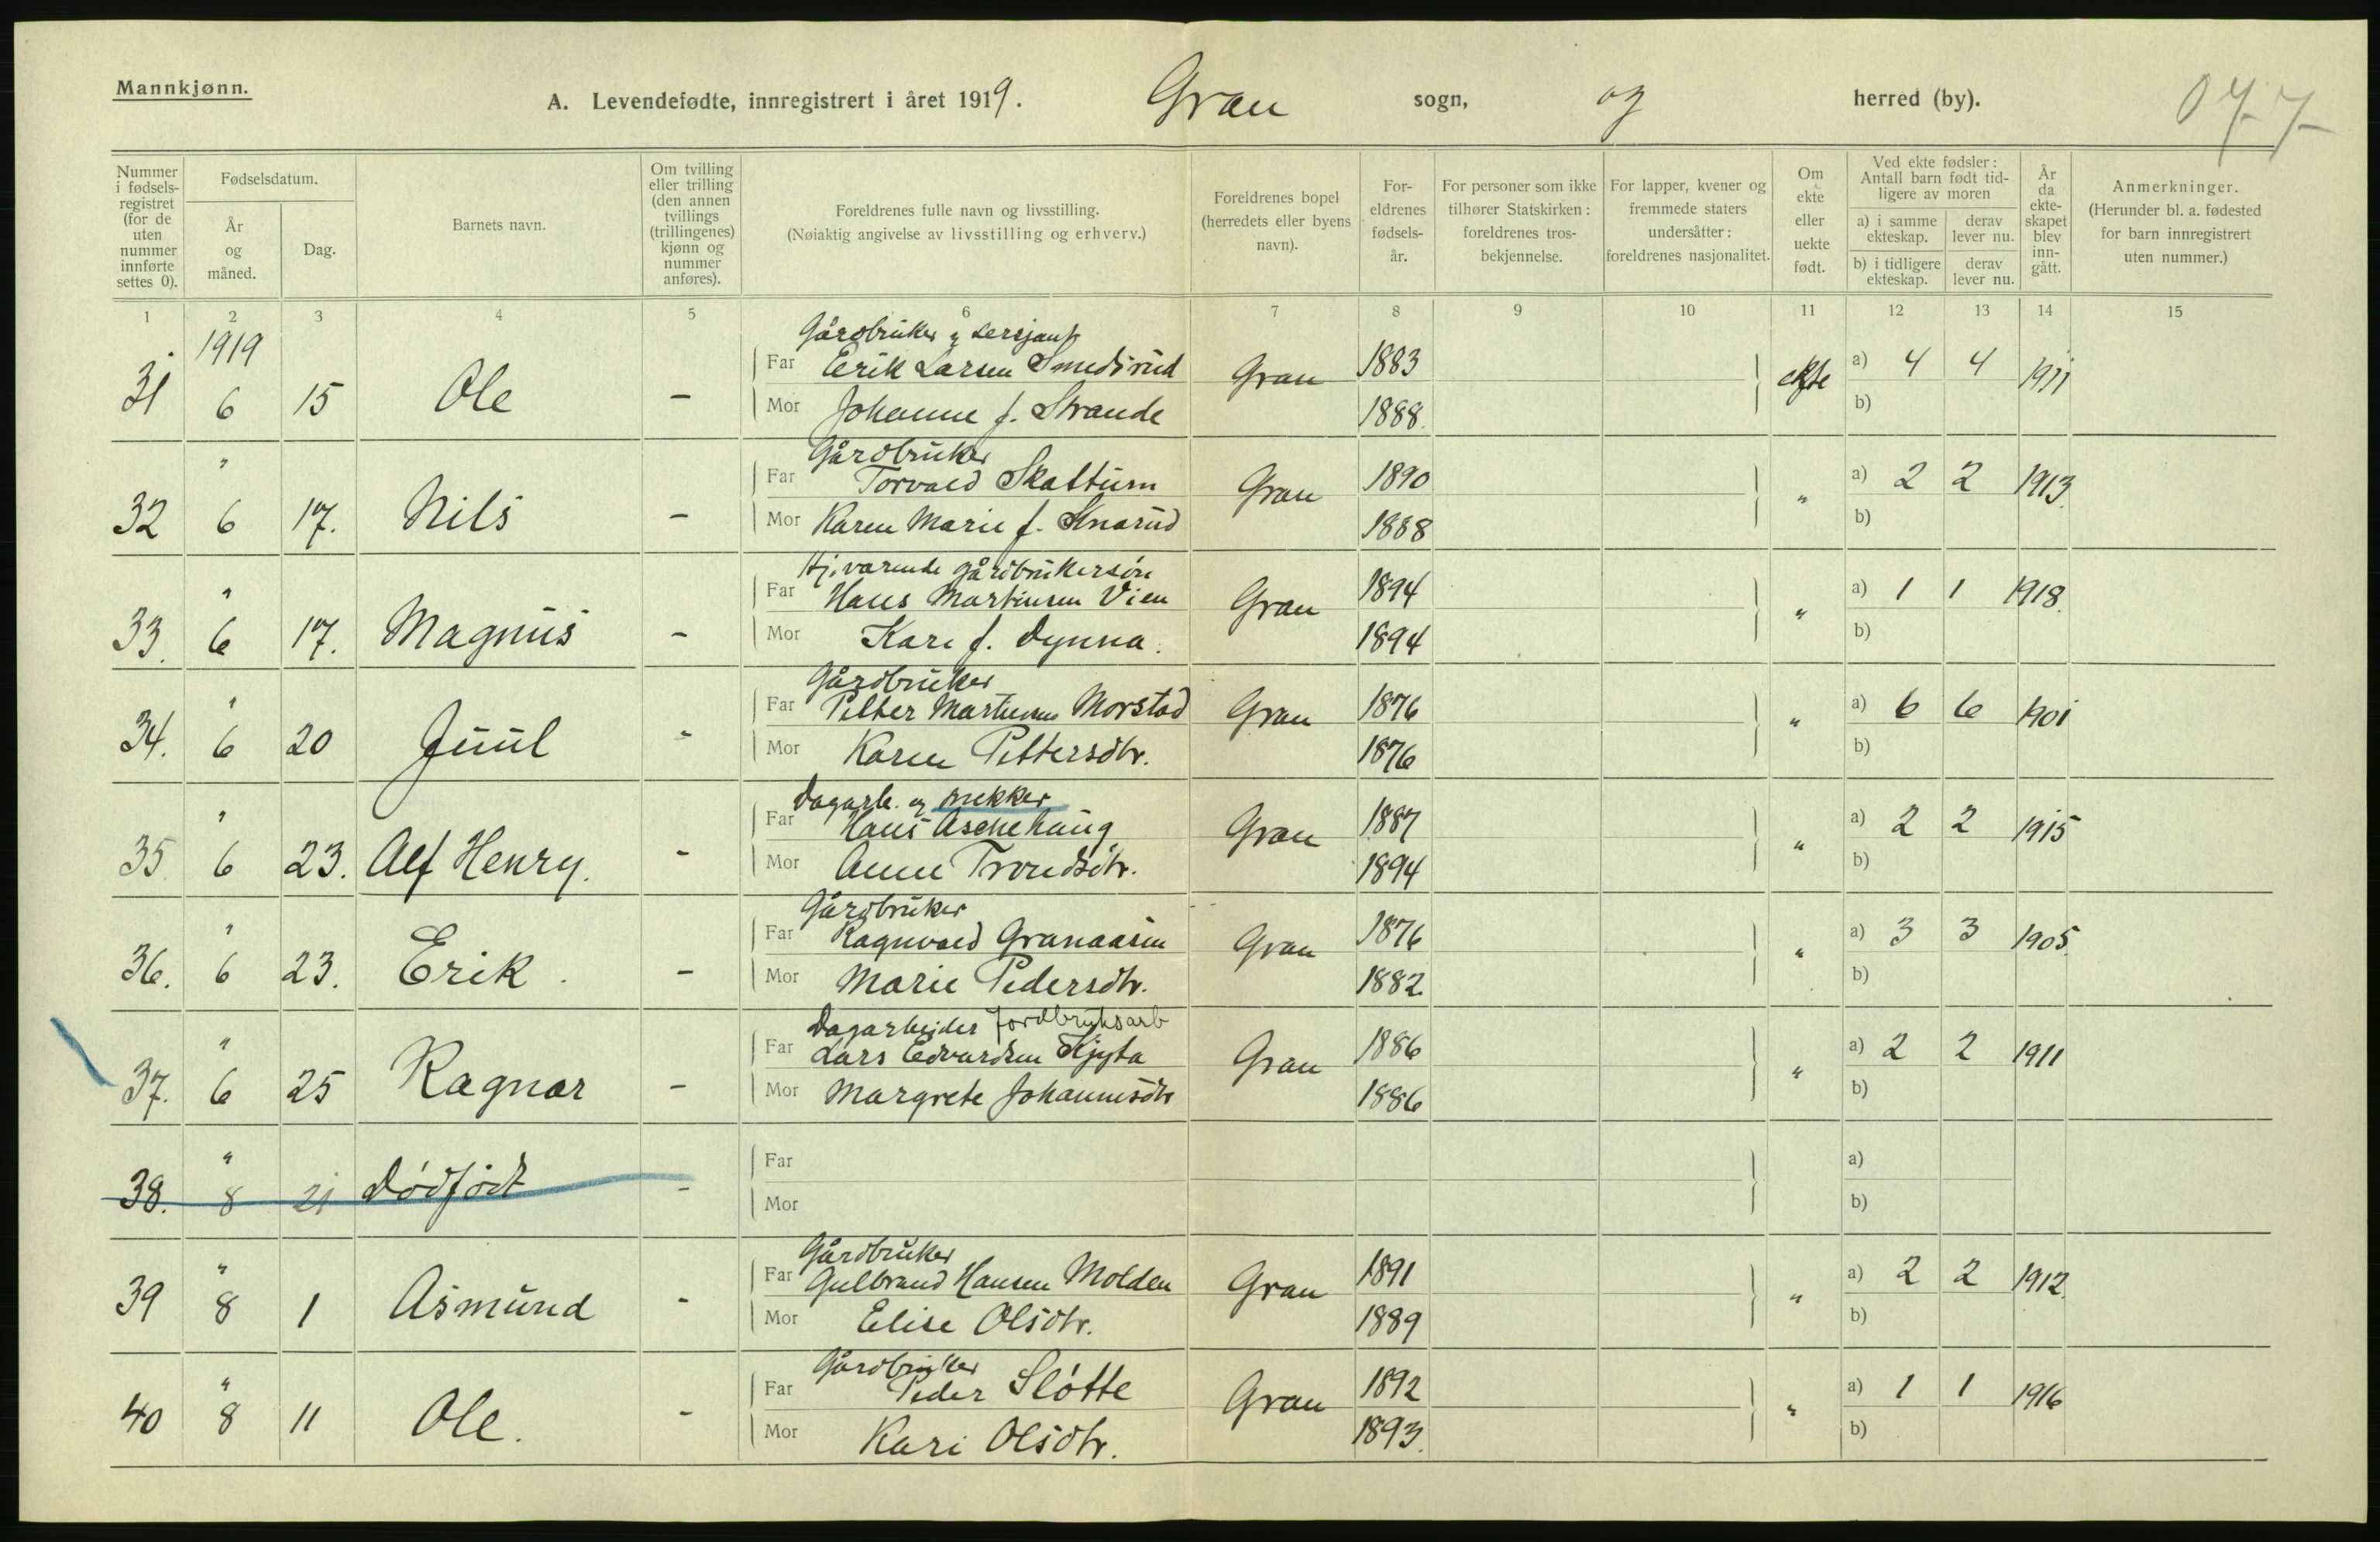 Mannkjønn.
A. Levendefødte, innregistrert i året 1919. Gran sogn, og herred (by). 077
Nummer i fødsels-registret (for de uten nummer innførte settes 0).
Fødselsdatum.
År og måned.
Dag.
Barnets navn.
Om tvilling eller trilling (den annen tvillings (trillingenes) kjønn og nummer anføres).
Foreldrenes fulle navn og livsstilling.
(Nøiaktig angivelse av livsstilling og erhverv.)
Foreldrenes bopel (herredets eller byens navn).
For-eldrenes fødsels-år.
For personer som ikke tilhører Statskirken: foreldrenes tros-bekjennelse.
For lapper, kvener og fremmede staters undersåtter: foreldrenes nasjonalitet.
Om ekte eller uekte født.
Ved ekte fødsler: Antall barn født tid-ligere av moren
a) i samme ekteskap. derav lever nu.
b) i tidligere ekteskap. derav lever nu.
År da ekte-skapet blev inn-gått.
Anmerkninger.
(Herunder bl. a. fødested for barn innregistrert uten nummer.)
1 2 3 4 5 6 7 8 9 10 11 12 13 14 15
1919 Gårdbruker og sersjant
Far Erik Larsen Smedsrud Gran 1883 ekte a) 4 4 1911
31 6 15 Ole - Mor Johanne f. Strande 1888. b)
" Gårdbruker
Far Torvald Skattum Gran 1890 " a) 2 2 1913.
32 6 17. Nils - Mor Karen Marie f. Knarud 1888 b)
" Hj.varende gårdbrukersøn
Far Hans Martinsen Vien Gran 1894 " a) 1 1 1918.
33. 6 17. Magnus - Mor Kari f. Dynna. 1894 b)
" Gårdbruker
Far Petter Martinus Morstad Gran 1876 " a) 6 6 1901
34. 6 20 Juul - Mor Karen Pettersdtr. 1876 b)
" Dagarb. og snekker
Far Hans Aschehaug Gran 1887 " a) 2 2 1915
35. 6 23. Alf Henry. - Mor Anne Trondsdtr. 1894 b)
" Gårdbruker
Far Ragnvald Granaasen Gran 1876 " a) 3 3 1905.
36. 6 23. Erik. - Mor Marie Pedersdtr. 1882. b)
" Dagarbeider Jordbruksarb
Far Lars Edvardsen Kjyta Gran 1886 " a) 2 2 1911
37. 6 25 Ragnar - Mor Margrete Johannesdtr 1886 b)
" Far a)
38. 8 21 Dødfødt - Mor b)
" Gårdbruker
Far Gulbrand Hansen Molden Gran 1891 " a) 2 2 1912.
39 8 1 Asmund - Mor Elise Olsdtr. 1889 b)
" Gårdbruker
Far Peder Sløtte Gran 1892 " a) 1 1 1916
40 8 11 Ole. - Mor Kari Olsdtr. 1893. b)